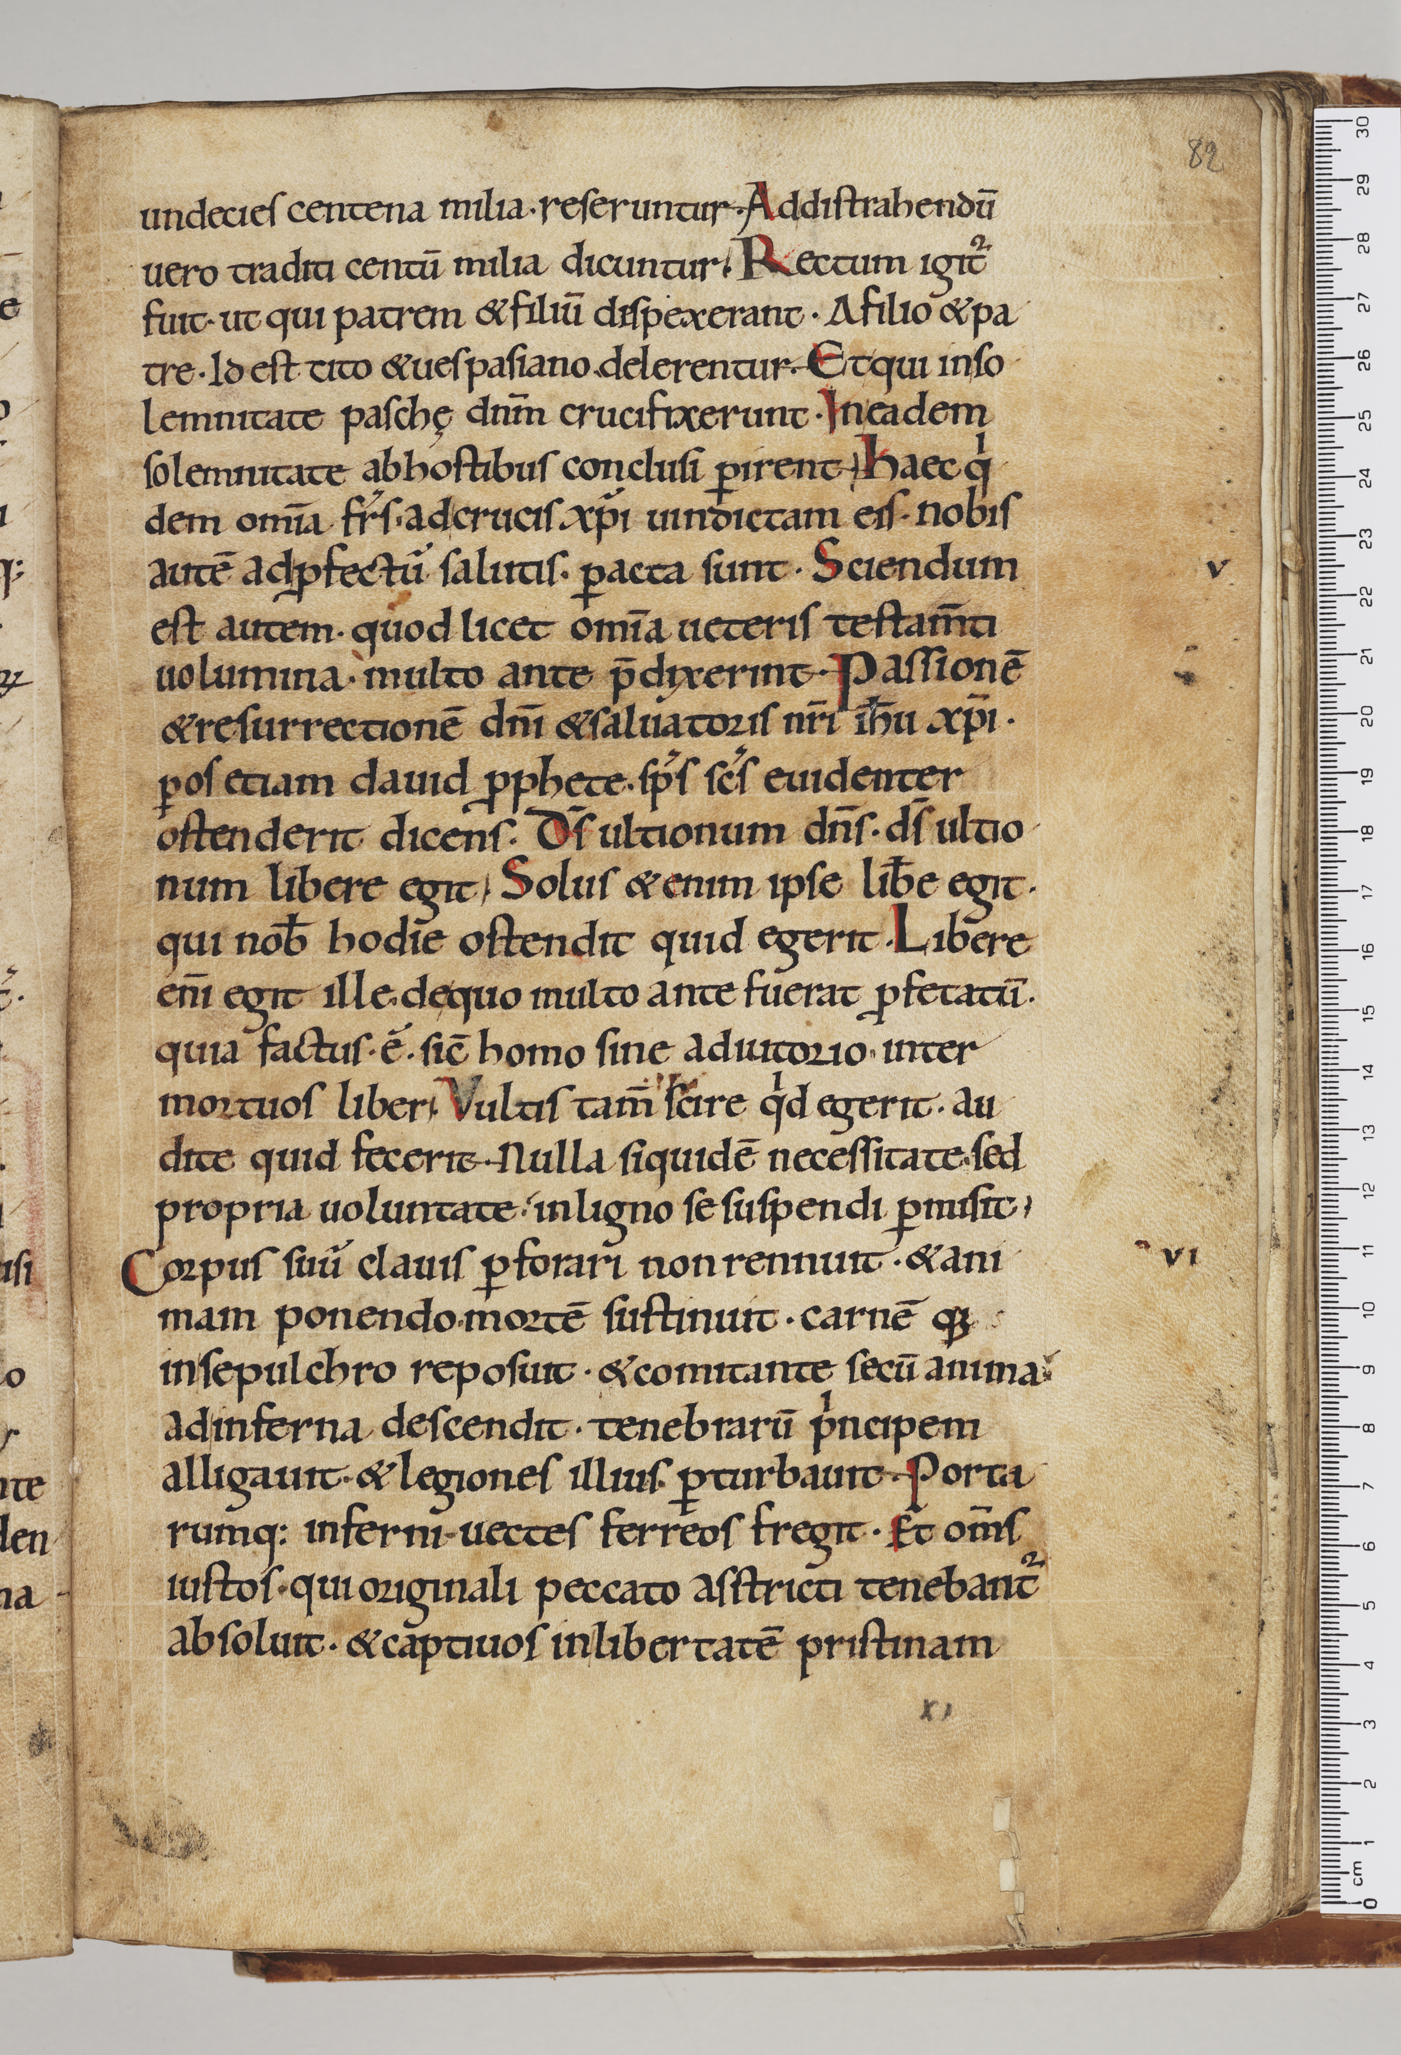 82
undecies centena milia· reseruntur· Addistrahendū
uero traditi centū milia dicuntur· Rectum igit᷑
fuit· ut qui patrem & filiū dispexerant· A filio & pa
tre· Id est tito & uespasiano delerentur· Et qui inso
lemnitate paschę dnm̄ crucifixerunt· In eadem
solemnitate ab hostibus conclusi ꝑirent· haec qͥ
dem om̄ia fr̄s· ad crucis xp̄i uindictam eis· nobis
autē ad ꝓfectū salutis· ꝑacta sunt· Sciendum
est autem· quod licet om̄ia ueteris testam̄ti
uolumina· multo ante p̄dixerint· Passionē
& resurrectionē dn̄i & saluatoris nr̄i ih̄u xp̄i·
ꝑ os etiam dauid ꝓphete· sp̄s sc̄s euidenter
ostenderit dicens· Ds̄ ultionum dn̄s· ds̄ ultio
num libere egit· Solus & enim ipse lib̄e egit·
qui nob̄ hodie ostendit quid egerit· Libere
en̄i egit ille· de quo multo ante fuerat ꝓfetatū·
quia factus· ē· sic̄ homo sine adiutorio· inter
mortuos liber· Vultis tam̄ scire qͥd egerit· au
dite quid fecerit· Nulla siquidē necessitate· sed
propria uoluntate· in ligno se suspendi ꝑmisit·
Corpus suū clauis ꝑforari non rennuit· & ani
mam ponendo· mortē sustinuit· carnē qꝫ
in sepulchro reposuit· & comitante secū anima·
ad inferna descendit· tenebrarū pͥncipem
alligauit· & legiones illius ꝑturbauit· Porta
rumq: inferni· uectes ferreos fregit· Et om̄s
iustos· qui originali peccato asstricti tenebant᷑
absoluit· & captiuos in libertatē pristinam
v
vi
xi